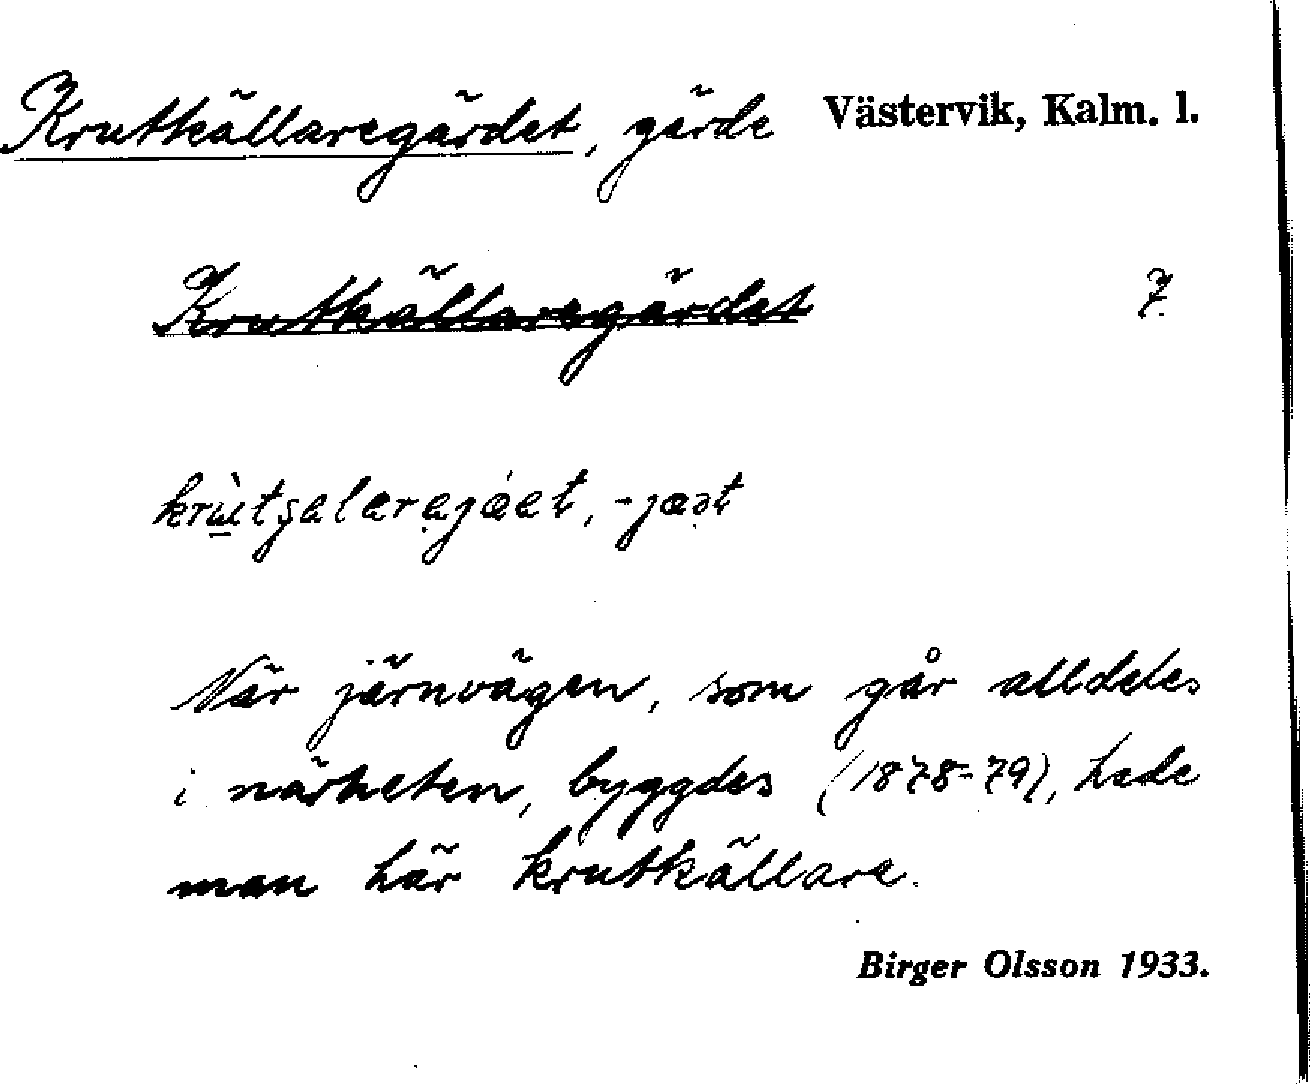 Krutkällaregärdet, gärde Västervik, Kalm. l.
Krutkällaregärdet 7.
När järnvägen, som går alldeles
i närheten, byggdes (1878-79), hade
man här krutkällare.
Birger Olsson 1933.